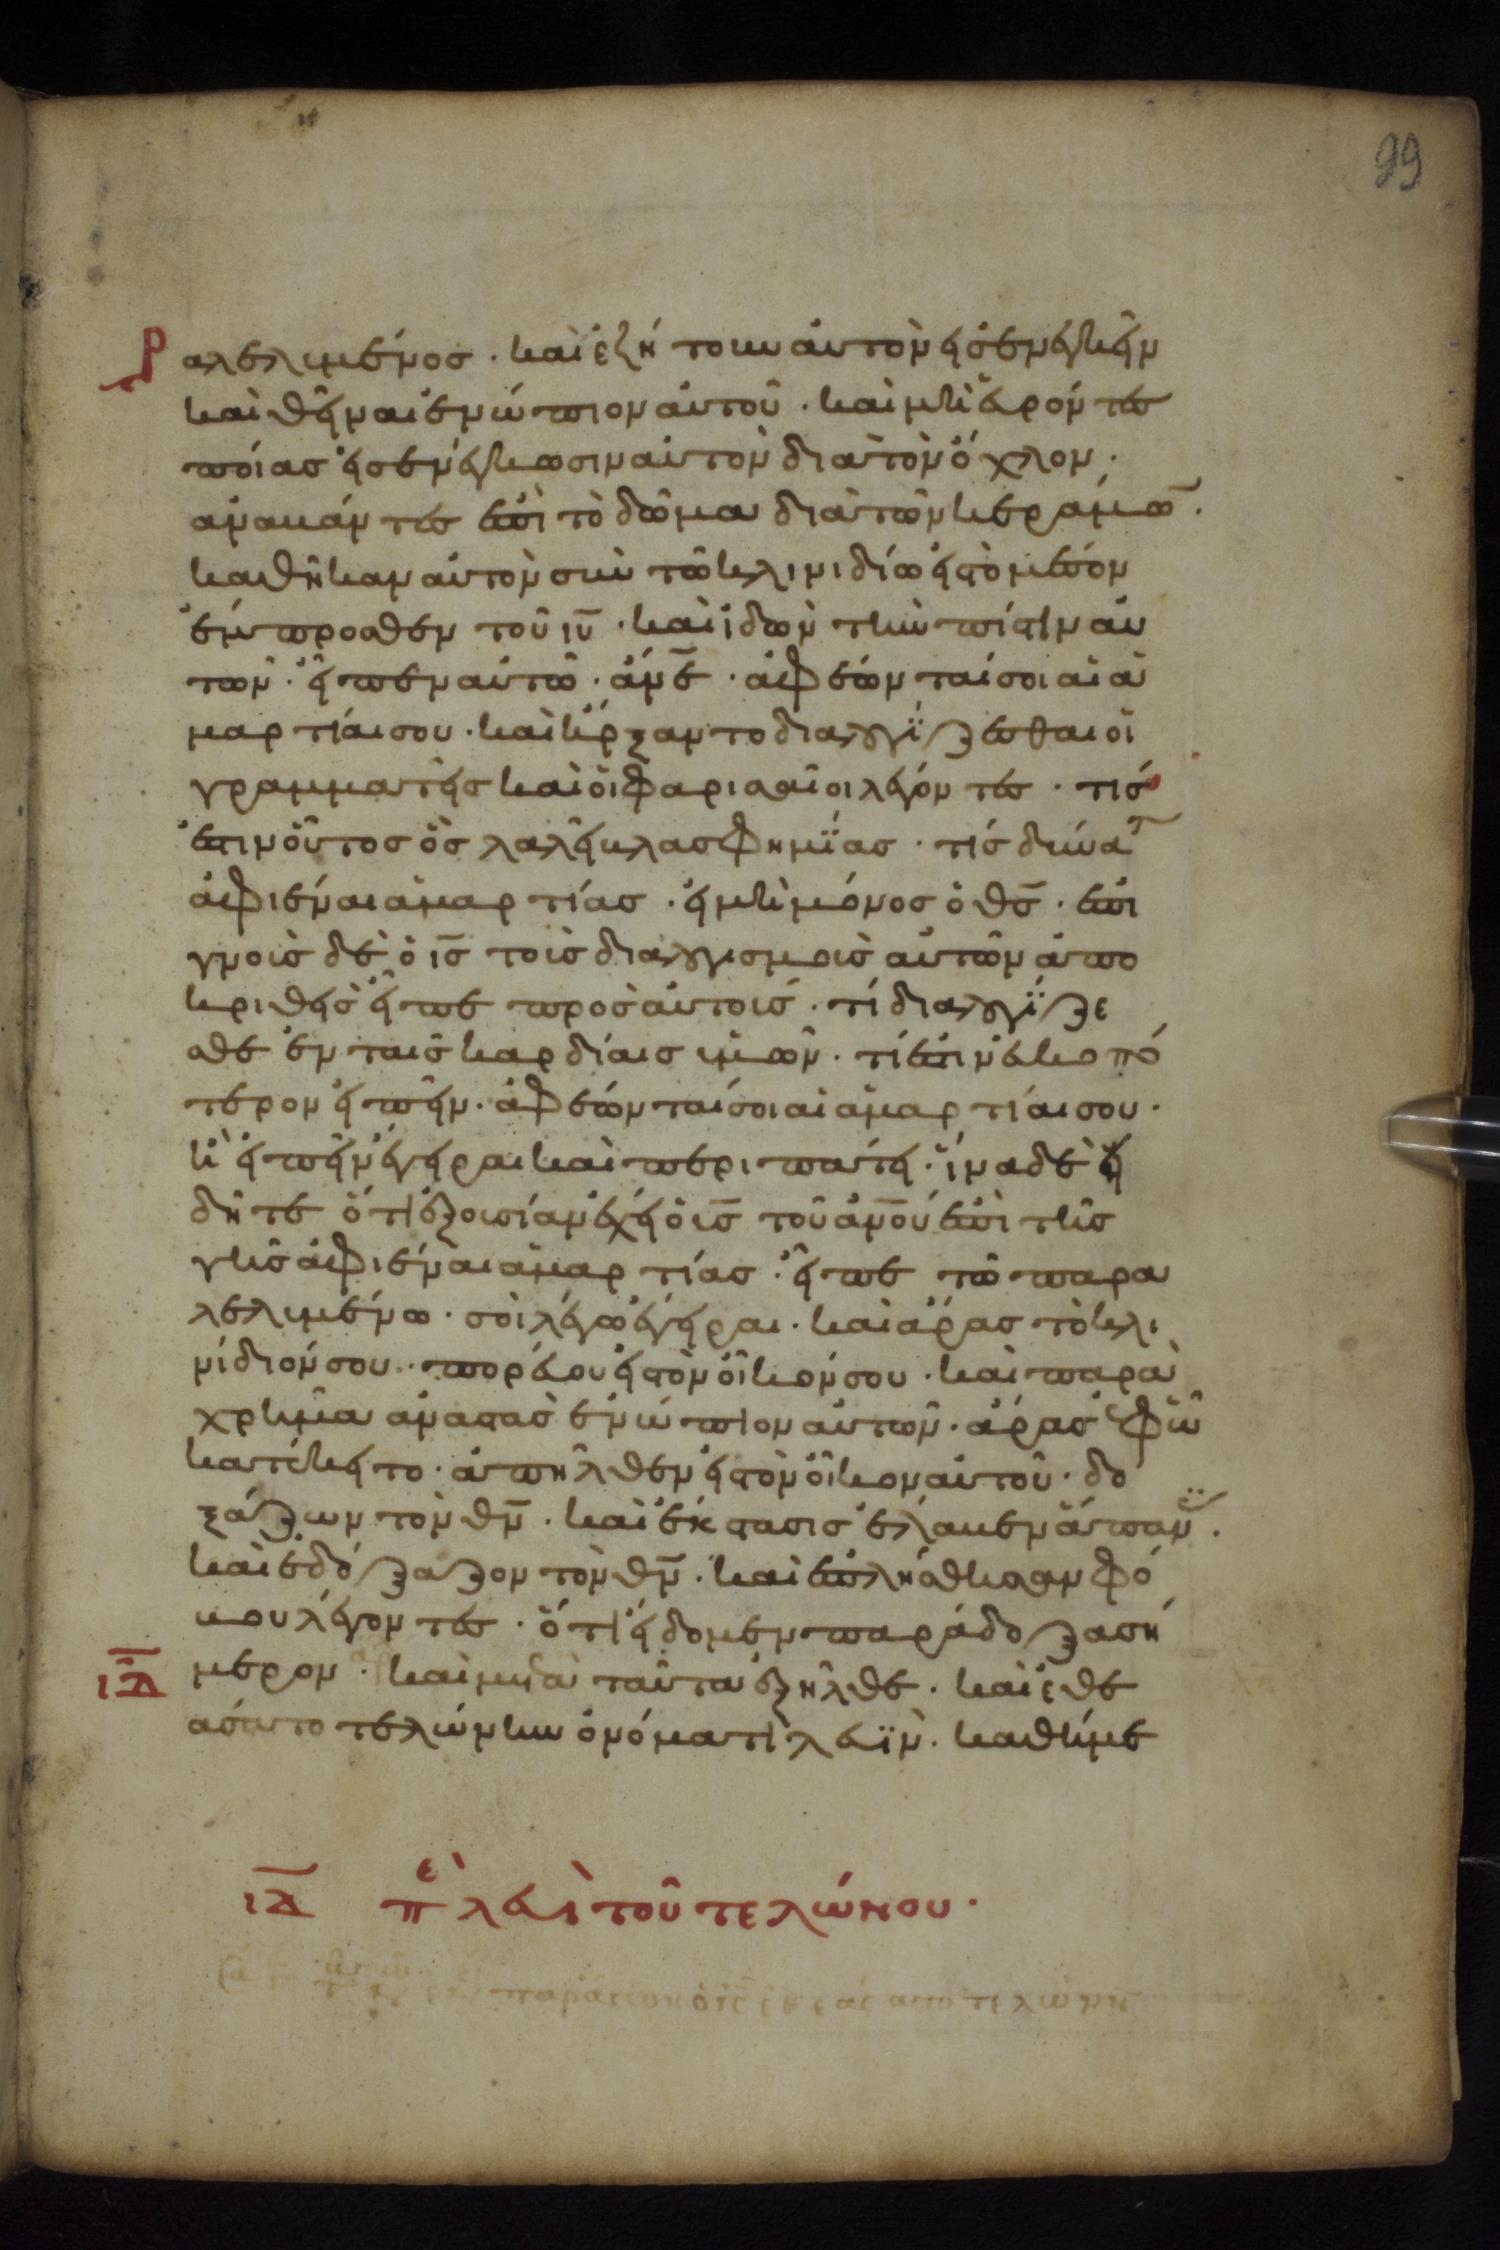 99
ραλελυμένος · καὶ ἐζήτουν αὐτὸν εἰσενεγκεῖν
καὶ θεῖναι ἐνώπιον αὐτοῦ · καὶ μὴ εὑρόντες
ποίας εἰσενέγκωσιν αὐτὸν διὰ τὸν ὄχλον ·
ἀναβάντες ἐπὶ τὸ δῶμα διὰ τῶν κεράμω̅ ·
καθῆκαν αὐτὸν σὺν τῶ κλινιδίω εἰς τὸ μέσον
ἔμπροσθεν τοῦ ιυ̅ · καὶ ἰδὼν τὴν πίστιν αὐ
τῶν · εἶπεν αὐτῶ · ἄνε̅ · ἀφέωνταί σοι αἱ ἁ
μαρτίαι σου · καὶ ἤρξαντο διαλογίζεσθαι οἱ
γραμματεῖς καὶ οἱ φαρισαῖοι λέγοντες · τίς
ἐστιν οὗτος ὃς λαλεῖ βλασφημΐας · τίς δύνατ
ἀφιέναι ἁμαρτίας · εἰ μὴ μόνος ὁ θς̅ · ἐπι
γνοὺς δὲ ὁ ις̅ τοὺς διαλογισμοὺς αὐτῶν ἀπο
κριθεὶς εἶπε πρὸς αὐτούς · τί διαλογίζε
σθε ἐν ταῖς καρδίαις ὑμῶν · τί ἐστιν εὐκοπώ
τερον εἰπεῖν · ἀφέωνταί σοι αἱ ἁμαρτίαι σου ·
ἢ εἰπεῖν ἔγειραι καὶ περιπάτει · ἵνα δὲ εἰ
δῆτε ὅτι ἐξουσίαν ἔχει ὁ υς̅ τοῦ ἀνο̅υ ἐπὶ τῆς
γῆς ἀφιέναι ἁμαρτίας · εἶπε τῶ παρα
λελυμένω · σοὶ λέγω ἔγειραι · καὶ ἄρας τὸ κλι
νίδιόν σου · πορεύου εἰς τὸν οἶκόν σου · καὶ παρα
χρῆμα ἀναστὰς ἐνώπιον αὐτῶν · ἄρας ἐφ' ὧ
κατέκειτο · ἀπῆλθεν εἰς τὸν οἶκον αὐτοῦ · δο
ξάζων τὸν θν̅ · καὶ ἔκστασις ἔλαβεν ἅπαν ·
καὶ ἐδόξαζον τὸν θν̅ · καὶ ἐπλήσθησαν φό
βου λέγοντες · ὅτι εἴδομεν παράδοξα σή
μερον · καὶ μετὰ ταῦτα ἐξῆλθε · καὶ ἐθε
ιδ̅
άσατο τελώνην ὀνόματι λευΐν · καθήμε
ιδ̅ πε λευὶ τοῦ τελώνου ·
παράγων ὁ ις̅